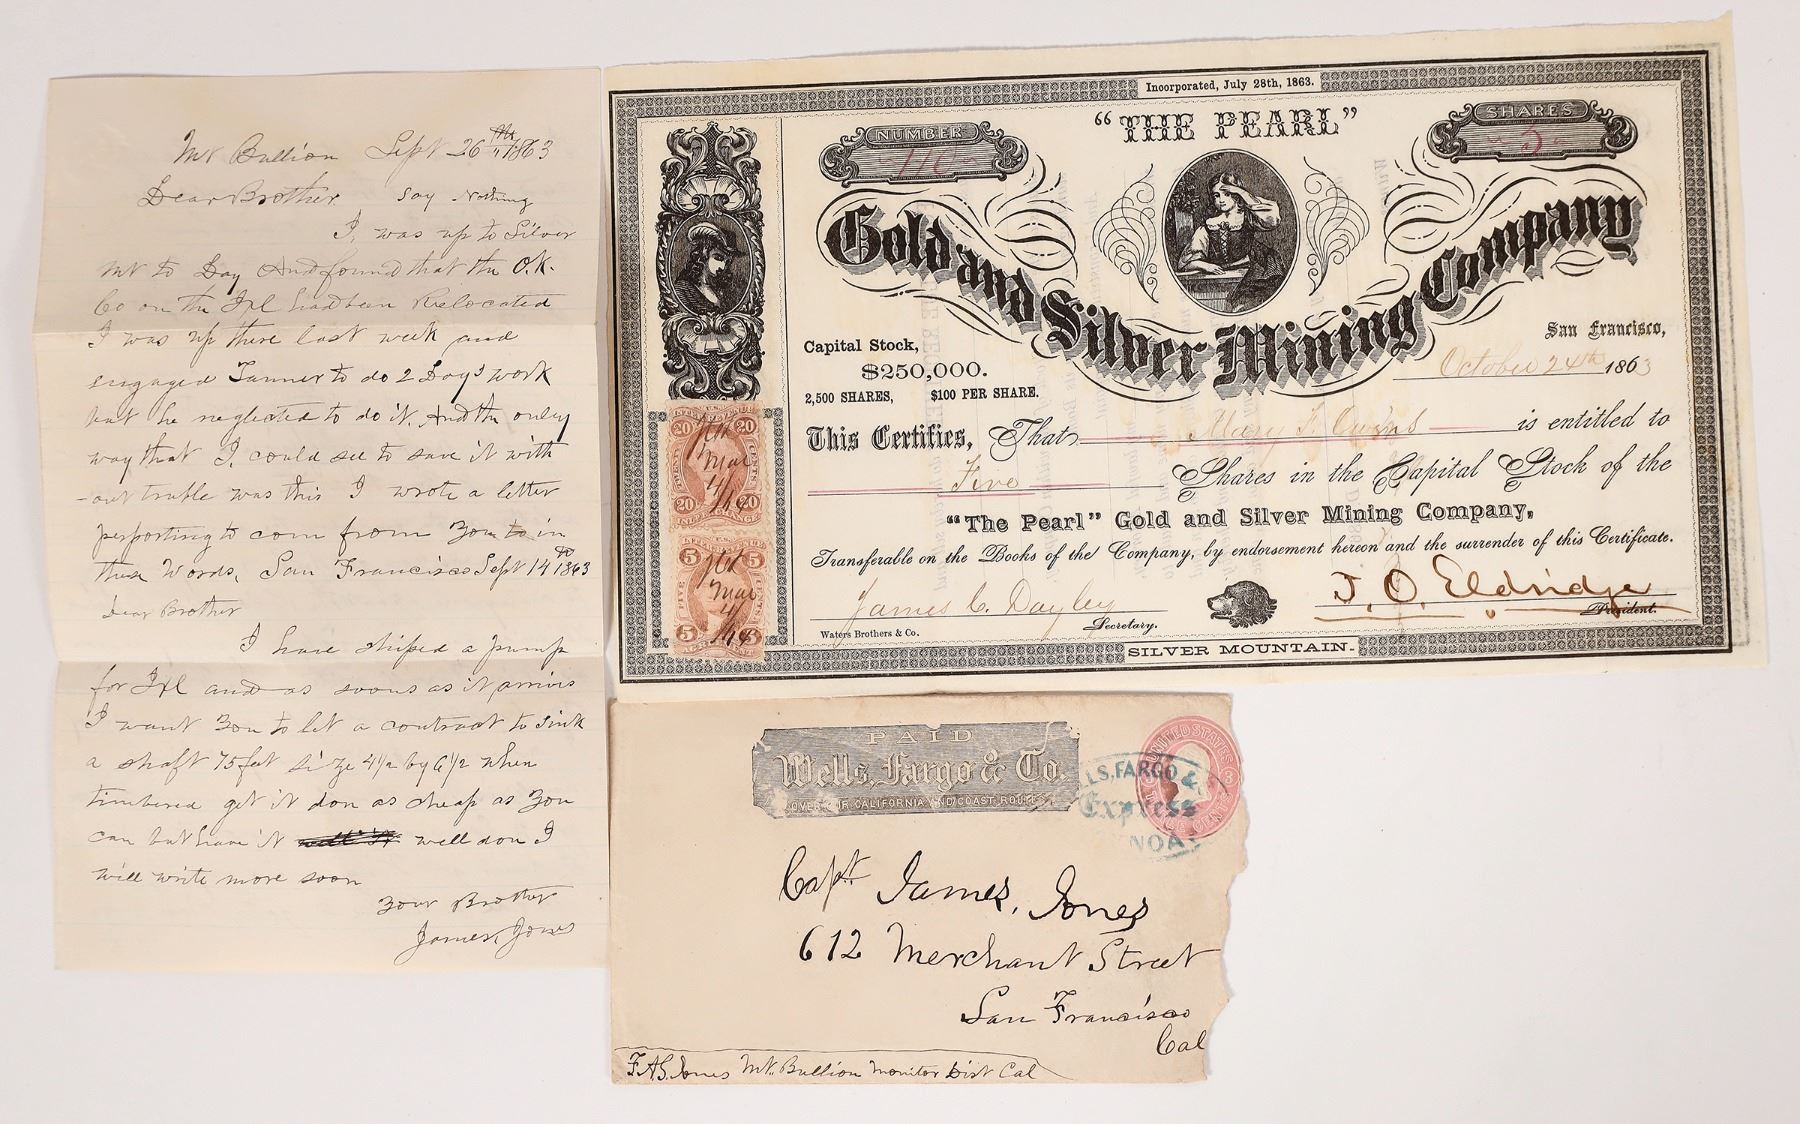 Mt Bullion Sept 26th 1863
Dear Brother Say Nothing
I, was up to Silver
Mt to Day And found that the O.K.
Co on the Ixl had been Relocated
I was up there last week and
engaged Tanner to do 2 Day's work
but he neglected to do it. And the only
way that I, could see to save it with
-out truble was this I wrote a letter
perporting to com from You to in
these Words, San Francisco Sept 14th 1863
Dear Brother
I have shiped a pump
for Ixl and as soons as it arrivs
I want You to let a contract to Sink
a shaft 75 feet size 4 1/2 by 6 1/2 when
timbered get it don as cheap as You
can but have it well don I
will write more soon
Your Brother
James, Jones
Incorporated, July 28th, 1863.
NUMBER
110
"THE PEARL"
SHARES
5
Gold and Silver Mining Company
Capital Stock,
$250,000.
2,500 SHARES, $100 PER SHARE.
San Francisco,
October 24th 1863
This Certifies, That Mary F. Owens is entitled to
Five Shares in the Capital Stock of the
"The Pearl" Gold and Silver Mining Company,
Transferable on the Books of the Company, by endorsement hereon and the surrender of this Certificate.
James C. Dayley
Secretary.
J. O. Eldridge
President.
Waters Brothers & Co.
SILVER MOUNTAIN.
20 20
CENTS
20 20
5 5
FIVE CENTS
5 5
Mar
4
Mar
4
PAID
Wells, Fargo & Co.
OVER OUR CALIFORNIA AND COAST ROUTES
LS, FARGO &
Express
NOA
UNITED STATES
3
THREE CENTS
Capt James, Jones
612 Merchant Street
San Francisco
Cal
F.A.S. Jones Mt. Bullion Monitor Dist Cal